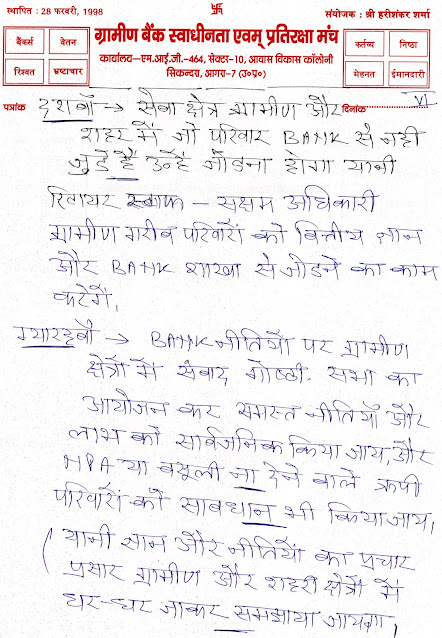 स्थापित : 28 फरवरी, 1998
संयोजक : श्री हरीशंकर शर्मा
बैंकर्स वेतन
रिश्वत भ्रष्टाचार
ग्रामीण बैंक स्वाधीनता एवम् प्रतिरक्षा मंच
कार्यालय–एम.आई.जी.–464, सेक्टर–10, आवास विकास कॉलोनी
सिकन्दरा, आगरा–7 (उ०प्र०)
कर्त्तव्य निष्ठा
मेहनत ईमानदारी
पत्रांक
दिनांक VI
दशवाँ → सेवा क्षेत्र ग्रामीण और
शहर में जो परिवार BANK से नही
जुड़े है उन्हे जोडना होगा यानी
रिटायर स्टाफ – सक्षम अधिकारी
ग्रामीण गरीब परिवारों को वित्तीय
और BANK शाखा से जोडने का काम
करेगें।
ग्यारहवाँ → BANK नीतियों पर ग्रामीण
क्षेत्रों में संवाद गोष्ठी. सभा का
आयोजन कर समस्त नीतियाँ और
लाभ को सार्वजनिक किया जाय, और
NPA या वसूली ना देने वाले ऋणी
परिवारों को सावधान भी किया जाय,
यानी और नीतियों का प्रचार
प्रसार ग्रामीण और शहरी क्षेत्रों में
घर–घर जाकर समझाया जायगा,